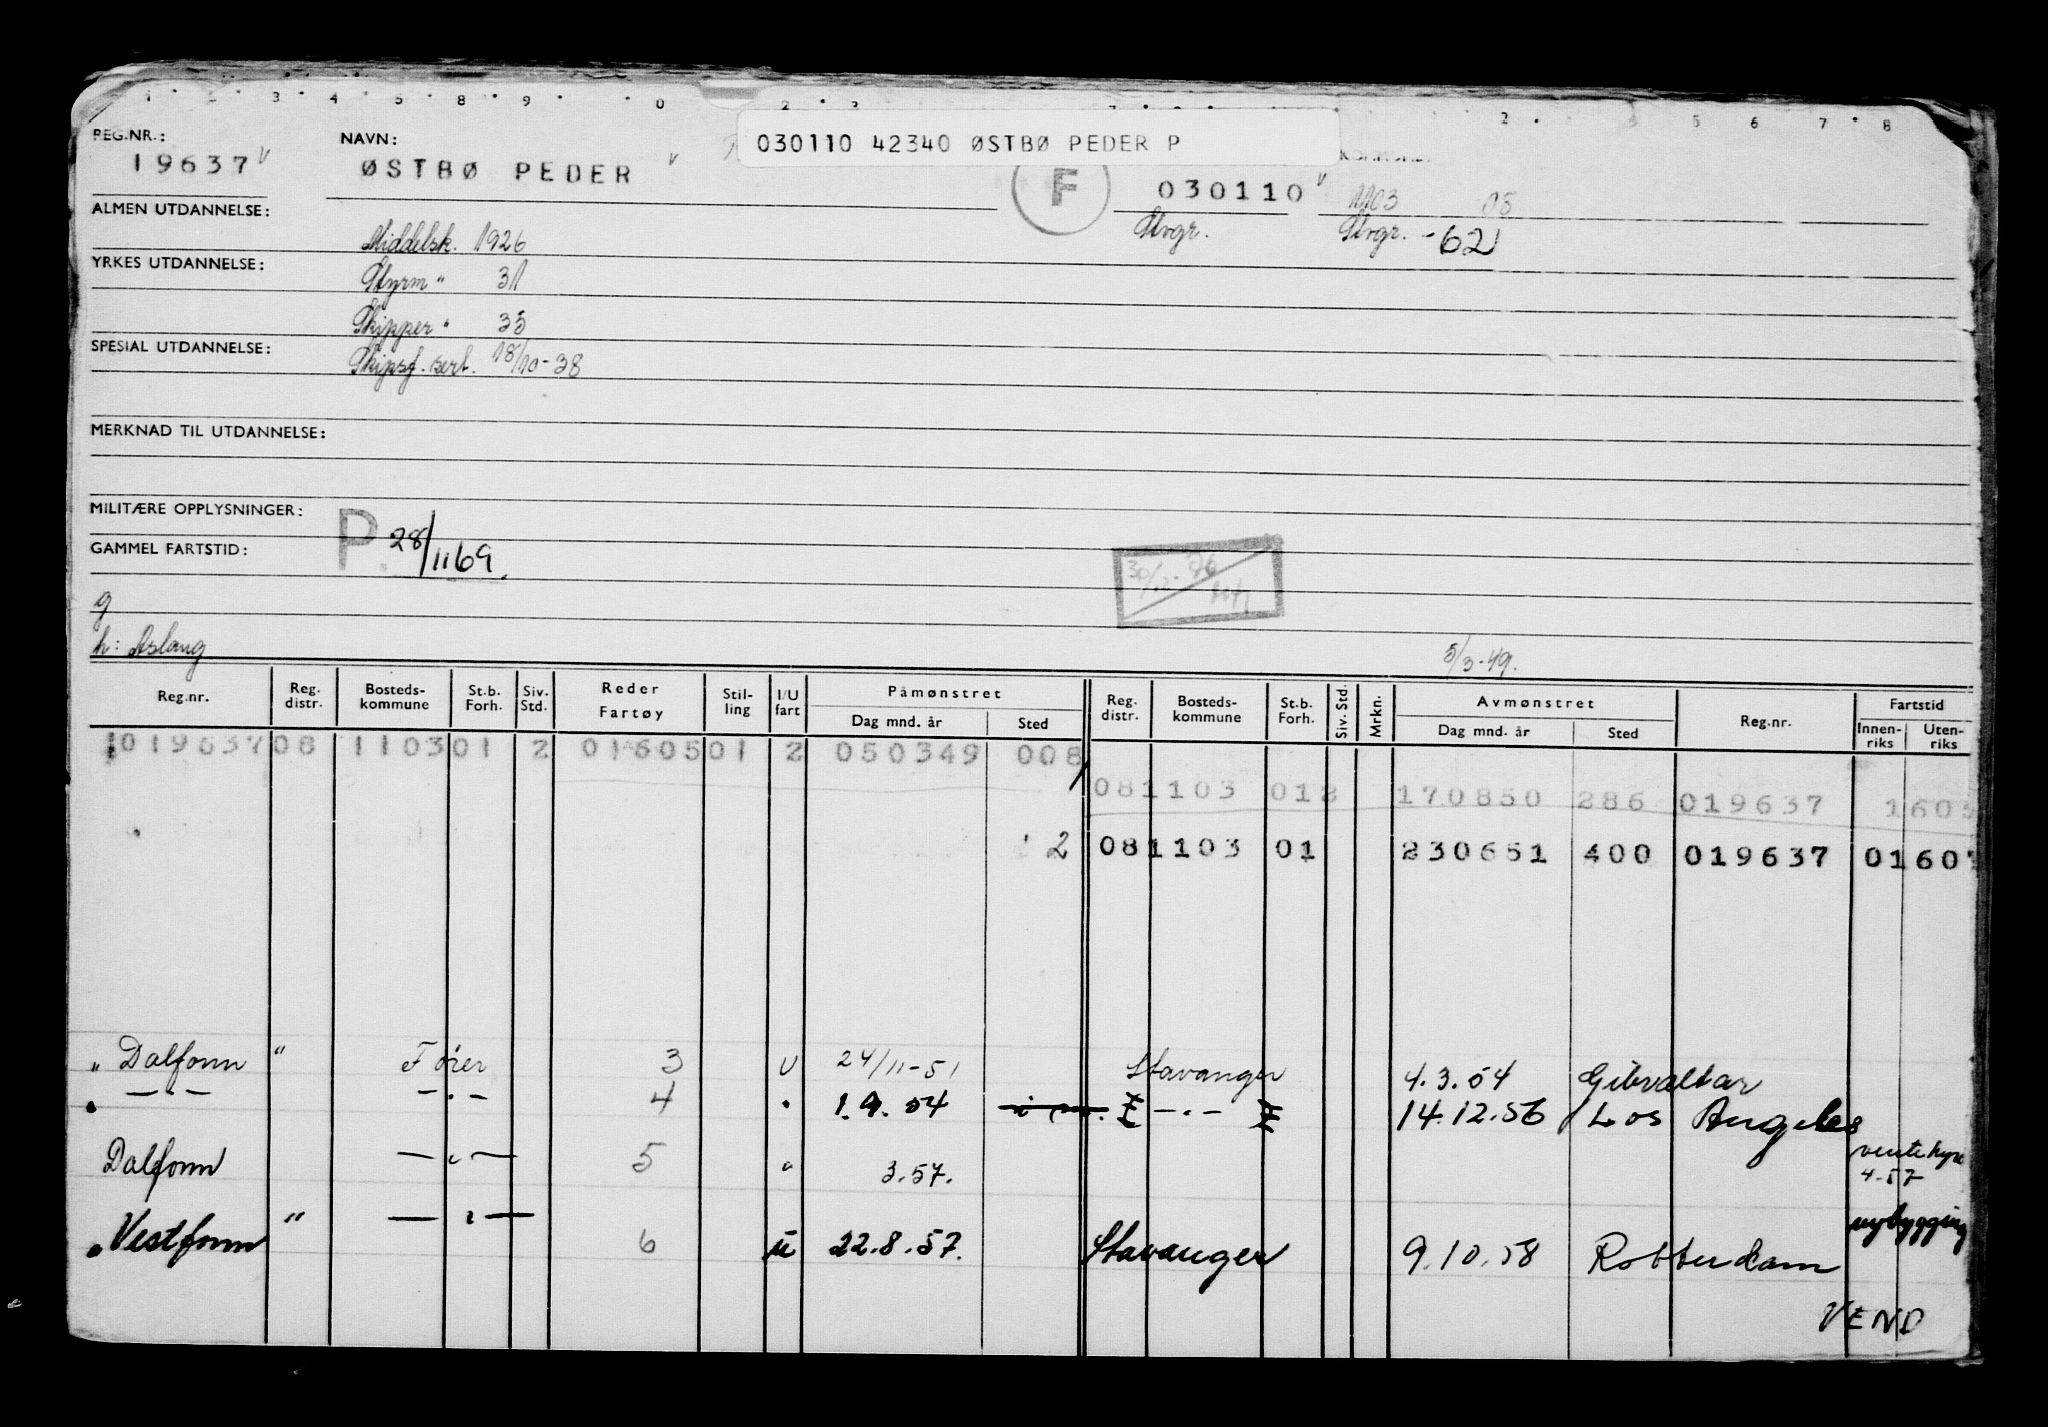 030110 42340 ØSTBØ PEDER P
REG.NR.: NAVN:
19637 v ØSTBØ PEDER v F 030110 v 1103 05
Utvgr. Utvgr. -62
ALMEN UTDANNELSE: Middelsk. 1926
YRKES UTDANNELSE: Styrm " 31
Skipper " 35
SPESIAL UTDANNELSE: Skipsf. sert. 18/10-38
MERKNAD TIL UTDANNELSE:
MILITÆRE OPPLYSNINGER:
GAMMEL FARTSTID: P. 28/11 69.
g
h: Aslaug 5/3-49.
Reg.nr. Reg. distr. Bosteds-kommune St.b. Forh. Siv. Std. Reder Fartøy Stil-ling I/U fart Påmønstret Dag mnd. år Sted Reg. distr. Bosteds-kommune St.b. Forh. Siv. Std. Mrkn. Avmønstret Dag mnd. år Sted Reg.nr. Fartstid Innen-riks Uten-riks
019637 08 1103 01 2 01605 01 2 050349 008
08 1103 01 2 170850 286 019637 1605
2 08 1103 01 230651 400 019637 0160
" Dalfonn " Fører 3 U 24/11-51 Stavanger 4.3.54 Gibraltar
— · — — · — 4 1.9.54 — · — 14.12.56 Los Angeles
Dalfonn — · — 5 " 3.57. 4-57
Vestfonn " — · — 6 u 22.8.57. Stavanger 9.10.58 Rotterdam nybygging
VEND